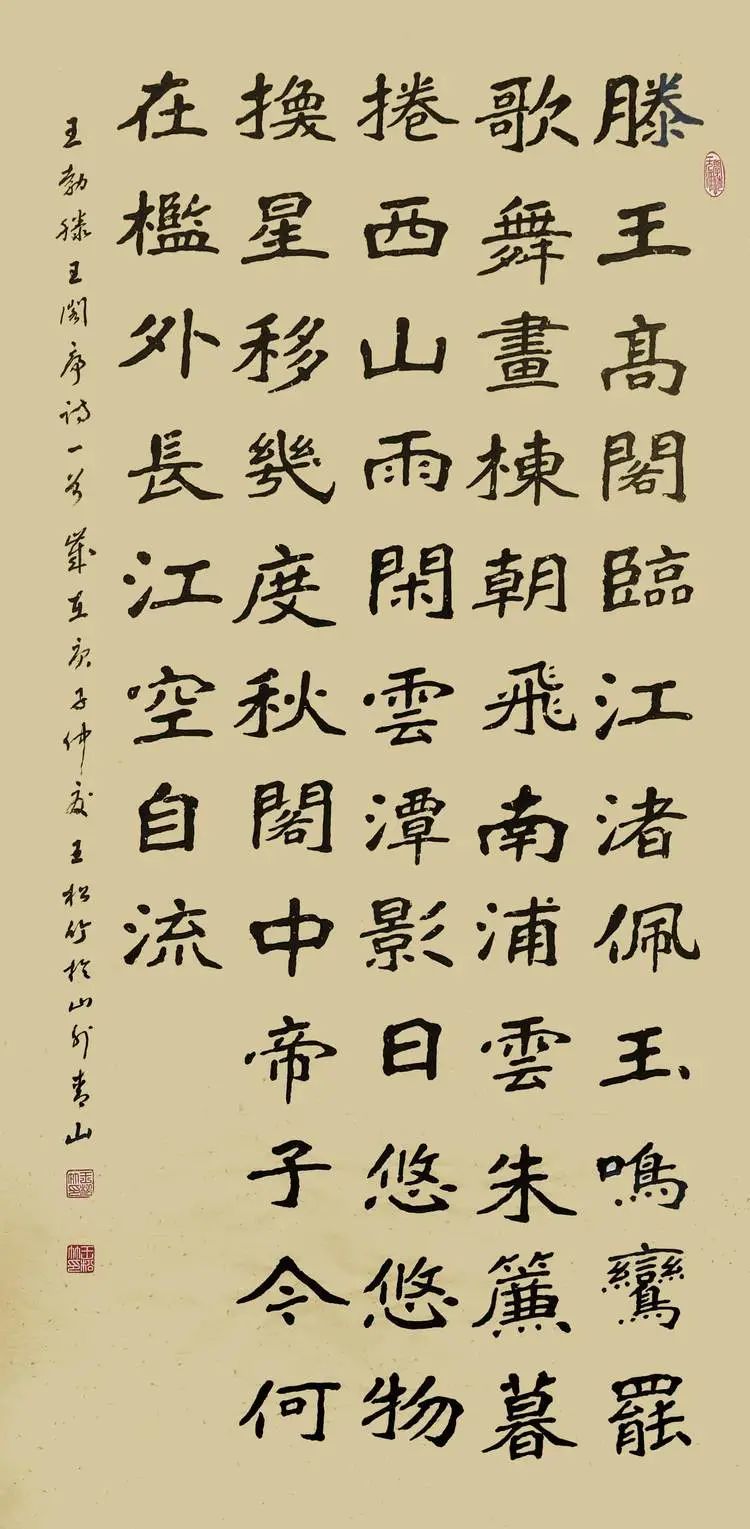 滕王高閣臨江渚佩玉鳴鸞罷
歌舞畫棟朝飛南浦雲朱簾暮
捲西山雨閑雲潭影日悠悠物
換星移幾度秋閣中帝子今何
在檻外長江空自流
王勃滕王閣序詩一首歲在庚子仲夏王松竹於山外青山